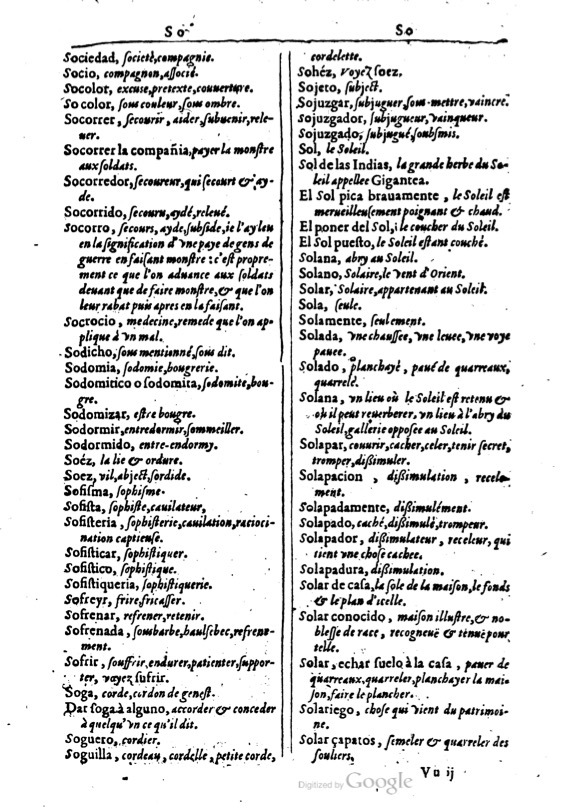 So
Sociedad, ſocietè, compagnie.
Socio, compagnon, aſſocié.
Socolor, excuse, pretexte, couuerture.
So color, ſous couleur, ſous ombre.
Socorrer, ſecourir, aider, ſubuenir, rele-
uer.
Socorrer la compañia, payer la monſtre
aux ſoldats.
Socorredor, ſecoureur, qui ſecourt & ay-
de.
Socorrido, ſecouru, aydé, releué.
Socorro, ſecours, ayde, ſubſide, ie l'ay leu
en la ſignification d'vne paye de gens de
guerre en faiſant monſtre: c'eſt propre-
ment ce que l'on aduance aux ſoldats
deuant que de faire monſtre, & que l'on
leur rabat puis apres en la faiſant.
Socrocio, medecine, remede que l'on ap-
plique à vn mal.
Sodicho, ſous mentionné, ſous dit.
Sodomia, ſodomie, bougrerie.
Sodomitico o ſodomita, ſodomite, bou-
gre.
Sodomizar, eſtre bougre.
Sodormir, entredormir, ſommeiller.
Sodormido, entre-endormy.
Soéz, la lie & ordure.
Soez, vil, abject, ſordide.
Sofiſma, ſophiſme.
Sofiſta, ſophiſte, cauilateur,
Sofiſteria, ſophiſterie, cauilation, racioci-
nation captieuse.
Sofiſticar, ſophiſtiquer.
Sofiſtico, ſophiſtique.
Sofiſtiqueria, ſophiſtiquerie.
Sofreyr, frire, fricaſſer.
Sofrenar, refrener, retenir.
Sofrenada, ſoubarbe, hauſſebec, refrene-
ment.
Sofrir, ſouffrir, endurer, patienter, ſuppor-
ter, voyez ſufrir.
Soga, corde, cordon de geneſt.
Dar ſoga à alguno, accorder & conceder
à quelqu'vn ce qu'il dit.
Soguero, cordier.
Soguilla, cordeau, cordelle, petite corde,
So
cordelette.
Sohéz, voyez ſoez.
Sojeto, ſubject.
Sojuzgar, ſubjuguer, ſous-mettre, vaincre.
Sojuzgador, ſubjugueur, vainqueur.
Sojuzgado, ſubjugué, ſoubſmis.
Sol, le Soleil.
Sol de las Indias, la grande herbe du So-
leil appellee Gigantea.
El Sol pica brauamente, le Soleil eſt
merueilleuſement poignant & chaud.
El poner del Sol, le coucher du Soleil.
El Sol pueſto, le Soleil eſtant couché.
Solana, abry au Soleil.
Solano, Solaire, le vent d'Orient.
Solar, Solaire, appartenant au Soleil.
Sola, ſeule.
Solamente, ſeulement.
Solada, vne chauſſee, vne leuee, vne voye
pauee.
Solado, planchayé, paué de quarreaux,
quarrelé.
Solana, vn lieu où le Soleil eſt retenu &
où il peut reuerberer, vn lieu à l'abry du
Soleil, gallerie oppoſee au Soleil.
Solapar, couurir, cacher, celer, tenir ſecret,
tromper, diſſimuler.
Solapacion, diſſimulation, recele-
ment.
Solapadamente, diſſimulément.
Solapado, caché, diſſimulé, trompeur.
Solapador, diſſimulateur, receleur, qui
tient vne choſe cachee.
Solapadura, diſſimulation.
Solar de caſa, la ſole de la maiſon, le fonds
& le plan d'icelle.
Solar conocido, maiſon illuſtre, & no-
bleſſe de race, recogneuë & tenuë pour
telle.
Solar, echar ſuelo à la caſa, pauer de
quarreaux, quarreler, planchayer la mai-
ſon, faire le plancher.
Solariego, choſe qui vient du patrimoi-
ne.
Solar çapatos, ſemeler & quarreler des
ſouliers,
Vu ij
Digitized by Google